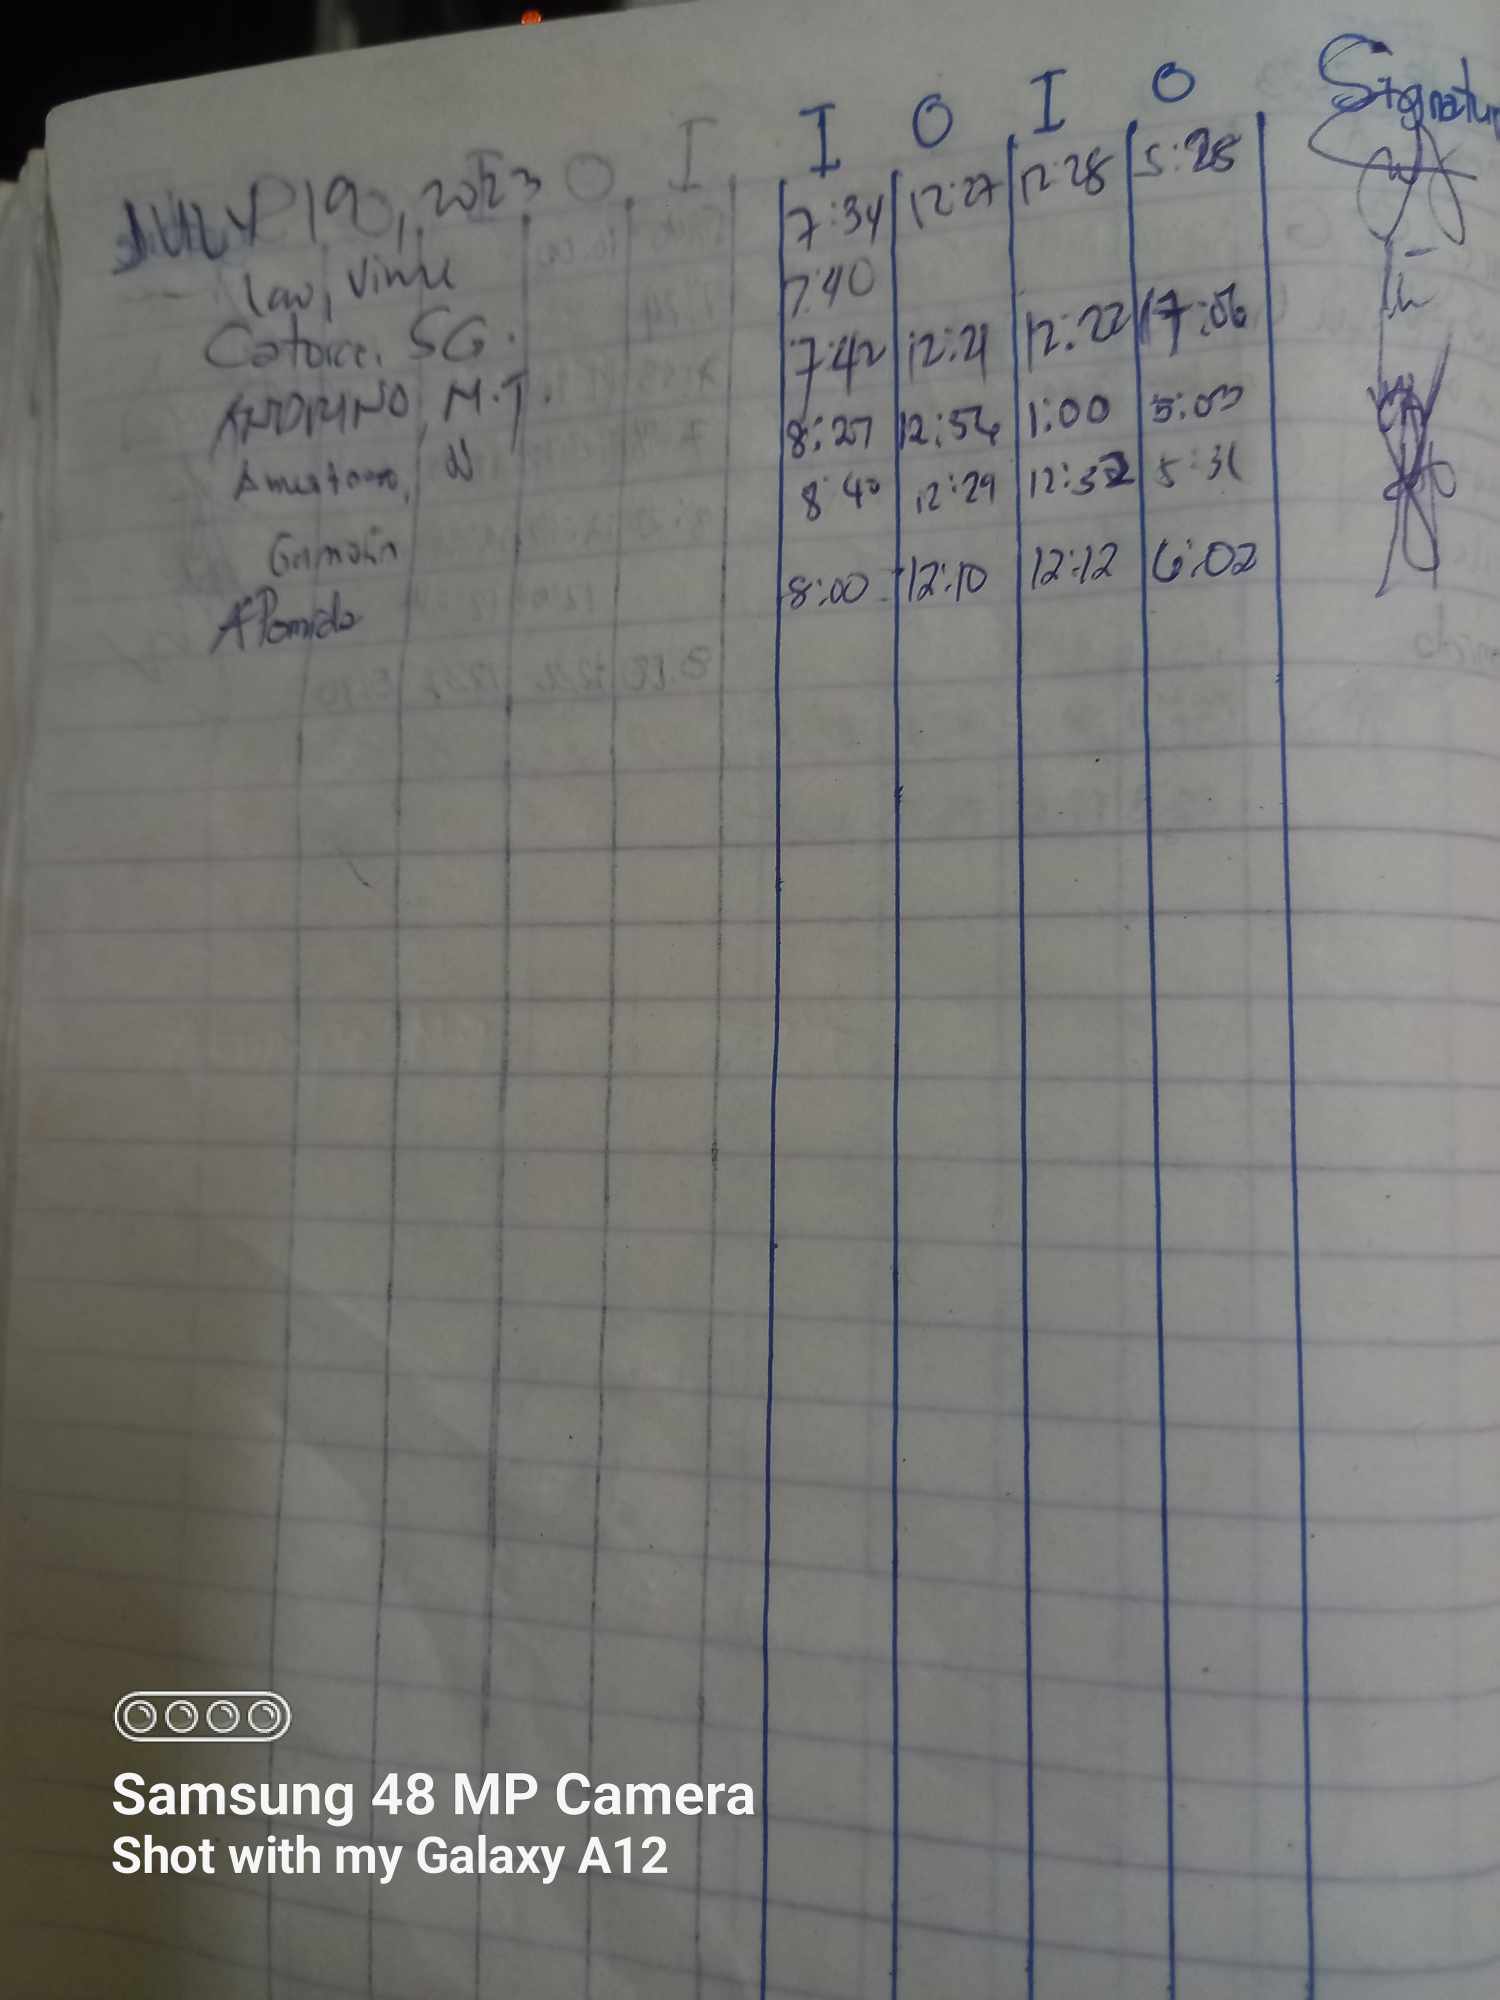 I O I O Signatur
JULY 19, 2023 O I
Lao, Vince 7:34 12:27 12:28 5:28
Catorce, SG. 7:40
M.T. 7:42 12:21 12:22 17:06
8:27 12:56 1:00 5:03
8:40 12:29 12:32 5:31
Alomida 8:00 12:10 12:12 6:02
Samsung 48 MP Camera
Shot with my Galaxy A12